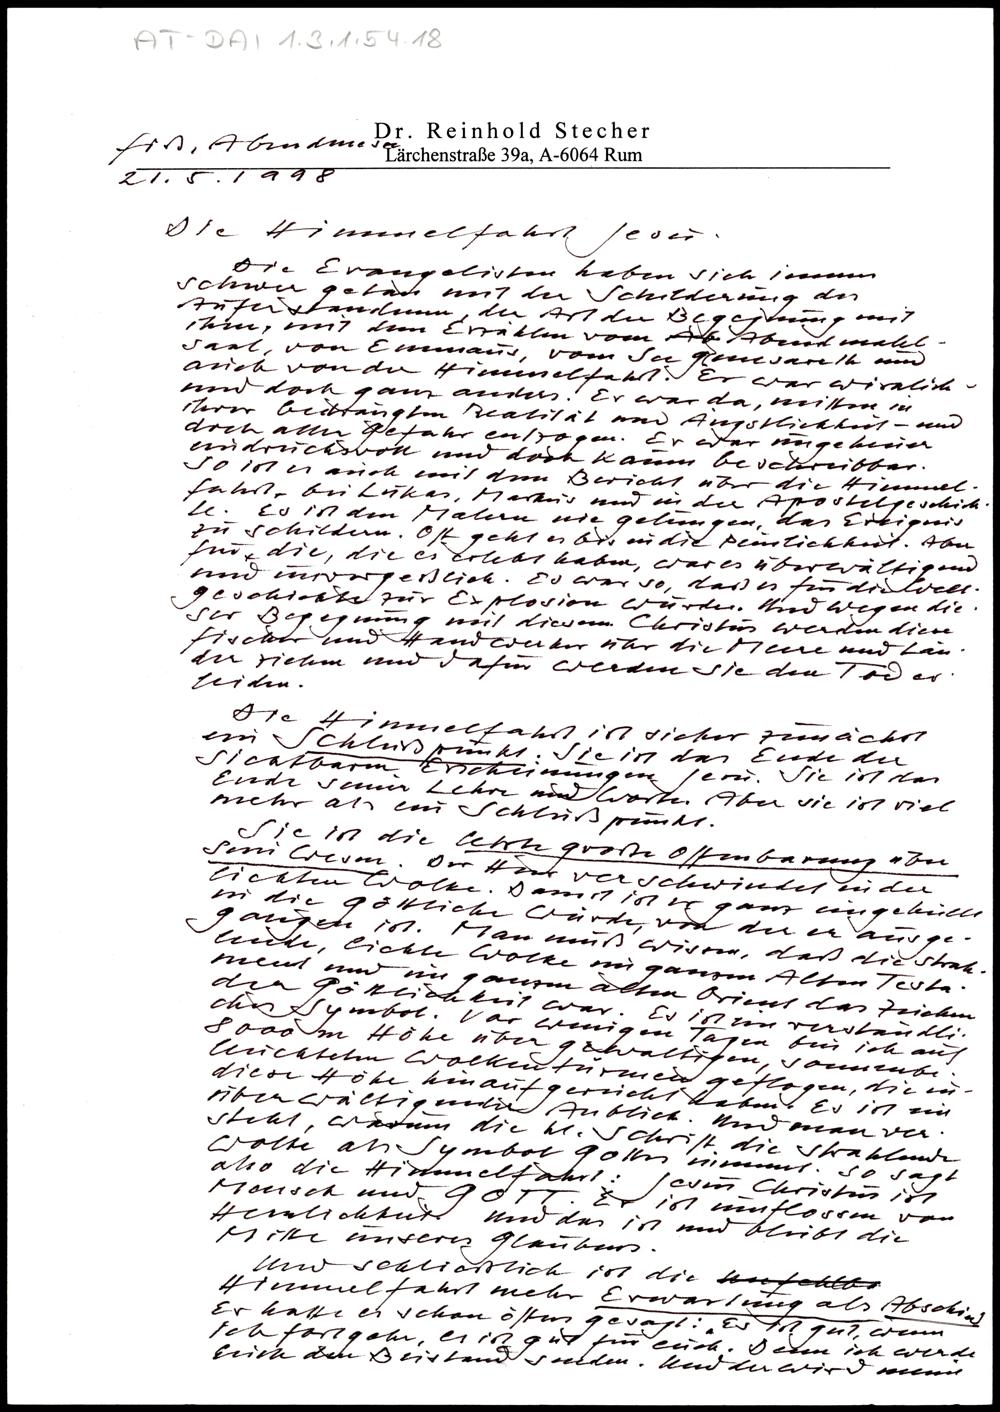 AT-DAI 1.3.1.54.18
Dr. Reinhold Stecher
Lärchenstraße 39a, A-6064 Rum
Abendmesse
21.5.1998
Die Himmelfahrt Jesu.
Die Evangelisten haben sich immer
schwer getan mit der Schilderung des
Auferstandenen, der Art der Begegnung mit
ihm, mit dem Erzählen vom Abendmahl-
saal, von Emmaus, vom See Genesareth und
auch von der Himmelfahrt. Er war wirklich -
und doch ganz anders. Er war da, mitten in
ihrer bedrängten Realität und Ängstlichkeit - und
doch aller Gefahr entzogen. Er war ungeheuer
eindrucksvoll und doch kaum beschreibbar.
So ist es auch mit dem Bericht über die Himmel-
fahrt bei Lukas, Markus und in der Apostelgeschich-
te. Es ist den Malern nie gelungen, das Ereignis
zu schildern. Oft geht es bis in die Peinlichkeit. Aber
für die, die es erlebt haben, war es überwältigend
und unvergeßlich. Es war so, daß es für die Welt-
geschichte zur Explosion wurde. Und wegen die-
ser Begegnung mit diesem Christus werden diese
Fischer und Handwerker über die Meere und Län-
der ziehen und dafür werden sie den Tod er-
leiden.
Die Himmelfahrt ist sicher zunächst
ein Schlußpunkt. Sie ist das Ende der
sichtbaren Erscheinungen Jesu. Sie ist das
Ende seiner Lehre und Worte. Aber sie ist viel
mehr als ein Schlußpunkt.
Sie ist die letzte große Offenbarung über
sein Wesen. Der Herr verschwindet in der
lichten Wolke. Damit ist er ganz eingehüllt
in die göttliche Würde, von der er ausge-
gangen ist. Man muß wissen, daß die strah-
lende, lichte Wolke im ganzen Alten Testa-
ment und im ganzen alten Orient das Zeichen
der Göttlichkeit war. Es ist ein verständli-
ches Symbol. Vor wenigen Tagen bin ich auf
8000 m Höhe über gewaltigen, sonnenbe-
leuchteten Wolkentürmen geflogen, die in
diese Höhe hinaufgereicht haben. Es ist ein
überwältigender Anblick. Und man ver-
steht, warum die hl. Schrift die strahlende
Wolke als Symbol Gottes nimmt. So sagt
also die Himmelfahrt: Jesus Christus ist
Mensch und GOTT. Er ist umflossen von
Herrlichkeit. Und das ist und bleibt die
Mitte unseres Glaubens.
Und schließlich ist die
Himmelfahrt mehr Erwartung als Abschied
Er hatte es schon öfters gesagt: „Es ist gut, wenn
ich fortgehe, es ist gut für euch. Denn ich werde
Euch den Beistand senden. Und der wird meine